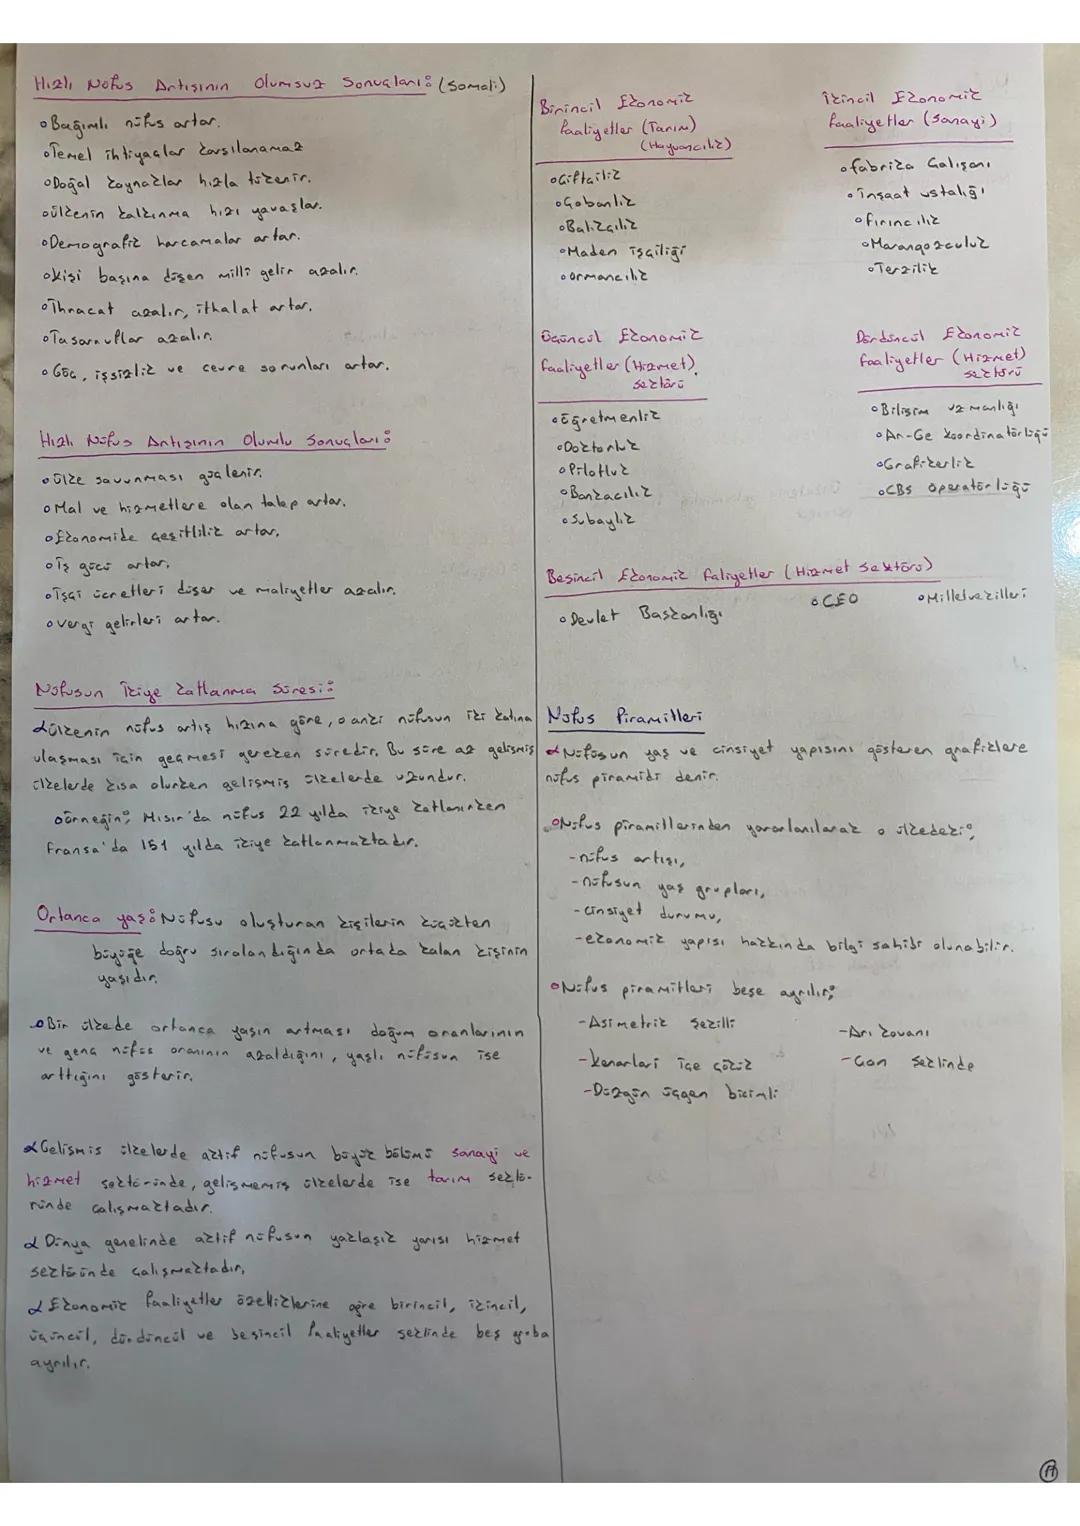 Hızlı Nüfus Artışının Olumsuz Sonuçları: (Somali)
Bağımlı nüfus artar.
Temel ihtiyaçlar karşılanamaz
Doğal kaynaklar hızla tükenir.
Ülkenin kalkınma hızı yavaşlar.
Demografik harcamalar artar.
Kişi başına düşen milli gelir azalır.
İhracat azalır, ithalat artar.
Tasarruflar azalır.
Göç, işsizlik ve çevre sorunları artar.
Hızlı Nüfus Artışının Olumlu Sonuçları:
Ülke savunması güçlenir.
Mal ve hizmetlere olan talep artar.
Ekonomide çeşitlilik artar.
İş gücü artar.
İşçi ücretleri düşer ve maliyetler azalır.
Vergi gelirleri artar.
Nüfusun İkiye Katlanma Süresi:
Ülkenin nüfus artış hızına göre, o anki nüfusun iki katına
ulaşması için geçmesi gereken süredir. Bu süre az gelişmiş
ülkelerde kısa olurken gelişmiş ülkelerde uzundur.
Örneğin; Mısır'da nüfus 22 yılda ikiye katlanırken
Fransa'da 151 yılda ikiye katlanmaktadır.
Ortanca yaş: Nüfusu oluşturan kişilerin küçükten
büyüğe doğru sıralandığında ortada kalan kişinin
yaşıdır.
Bir ülkede ortanca yaşın artması doğum oranlarının
ve genç nüfus oranının azaldığını, yaşlı nüfusun ise
arttığını gösterir.
Gelişmiş ülkelerde aktif nüfusun büyük bölümü sanayi ve
hizmet sektöründe, gelişmemiş ülkelerde ise tarım sektö-
ründe çalışmaktadır.
Dünya genelinde aktif nüfusun yaklaşık yarısı hizmet
sektöründe çalışmaktadır.
Ekonomik faaliyetler özelliklerine göre birincil, ikincil,
üçüncül, dördüncül ve beşincil faaliyetler şeklinde beş gruba
ayrılır.
Birincil Ekonomik
faaliyetler (Tarım)
(Hayvancılık)
Çiftçilik
Çobanlık
Balıkçılık
Maden işçiliği
Ormancılık
İkincil Ekonomik
faaliyetler (Sanayi)
fabrika Çalışanı
İnşaat ustalığı
fırıncılık
Marangozculuk
Terzilik
Üçüncül Ekonomik
faaliyetler (Hizmet)
sektörü
Öğretmenlik
Doktorluk
Pilotluk
Bankacılık
Subaylık
Dördüncül Ekonomik
faaliyetler (Hizmet)
sektörü
Bilişim uzmanlığı
Ar-Ge koordinatörlüğü
Grafikerlik
CBS operatörlüğü
Beşincil Ekonomik faliyetler (Hizmet Sektörü)
Devlet Başkanlığı
CEO
Milletvekilleri
Nüfus Piramitleri
Nüfusun yaş ve cinsiyet yapısını gösteren grafiklere
nüfus piramidi denir.
Nüfus piramitlerinden yararlanılarak o ülkedeki;
-nüfus artışı,
-nüfusun yaş grupları,
-cinsiyet durumu,
-ekonomik yapısı hakkında bilgi sahibi olunabilir.
Nüfus piramitleri beşe ayrılır;
-Asimetrik şekilli
-Arı kovanı
-Kenarları içe çökük
-Çan şeklinde
-Düzgün üçgen biçimli